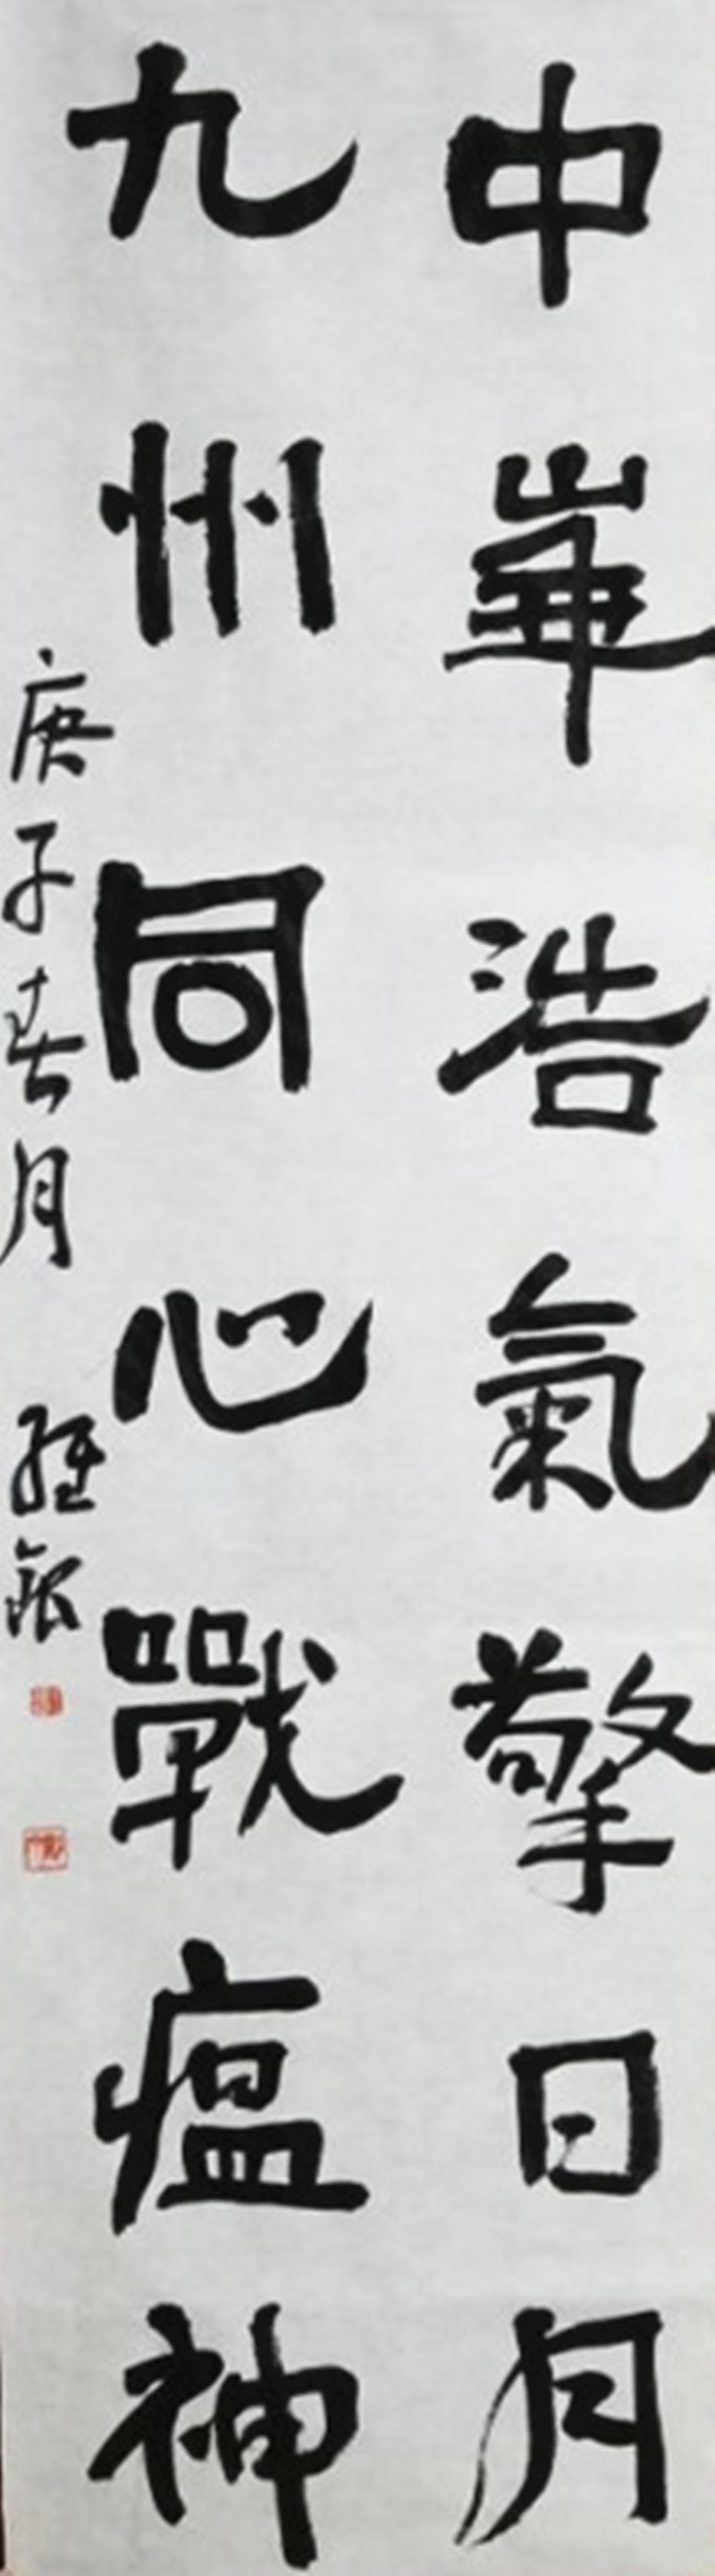 中華浩氣擎日月
九州同心戰瘟神
庚子春月